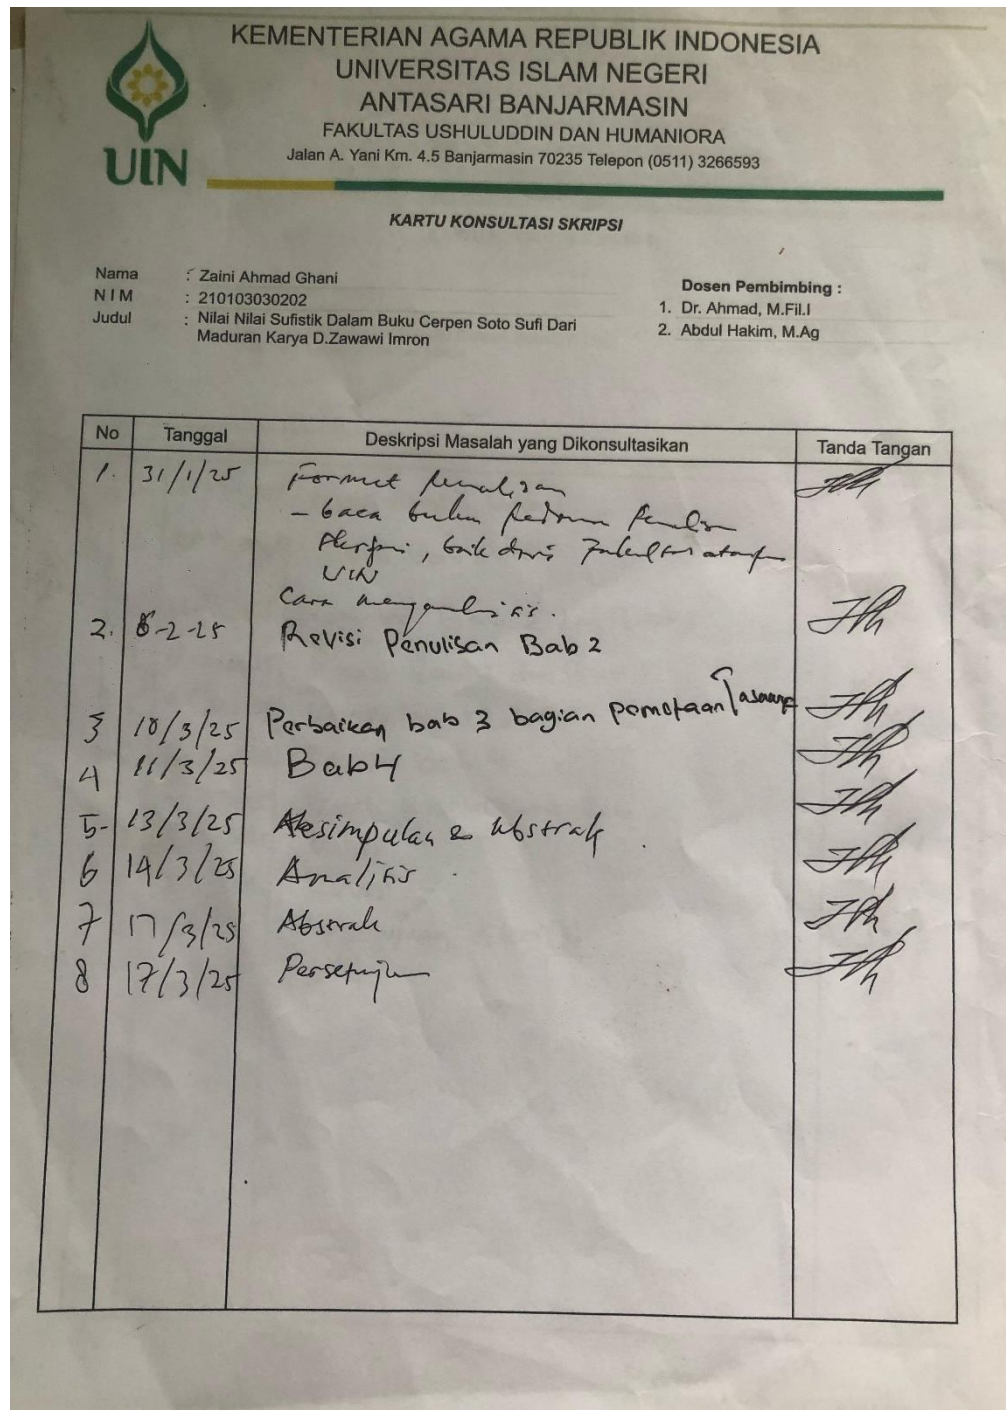 KEMENTERIAN AGAMA REPUBLIK INDONESIA
UNIVERSITAS ISLAM NEGERI
ANTASARI BANJARMASIN
FAKULTAS USHULUDDIN DAN HUMANIORA
Jalan A. Yani Km. 4.5 Banjarmasin 70235 Telepon (0511) 3266593
UIN
KARTU KONSULTASI SKRIPSI
Nama : Zaini Ahmad Ghani
NIM : 210103030202
Judul : Nilai Nilai Sufistik Dalam Buku Cerpen Soto Sufi Dari
Maduran Karya D.Zawawi Imron
Dosen Pembimbing :
1. Dr. Ahmad, M.Fil.I
2. Abdul Hakim, M.Ag
No Tanggal Deskripsi Masalah yang Dikonsultasikan Tanda Tangan
1. 31/1/25 Format penulisan
- baca buku pedoman
, baik dari
UIN
Cara
2. -2-25 Revisi Penulisan Bab 2
3 10/3/25 Perbaikan bab 3 bagian pemetaan
4 11/3/25 Bab 4
5- 13/3/25 Kesimpulan & Abstrak
6 14/3/25 Analisis
7 17/3/25 Abstrak
8 17/3/25 Persetujuan